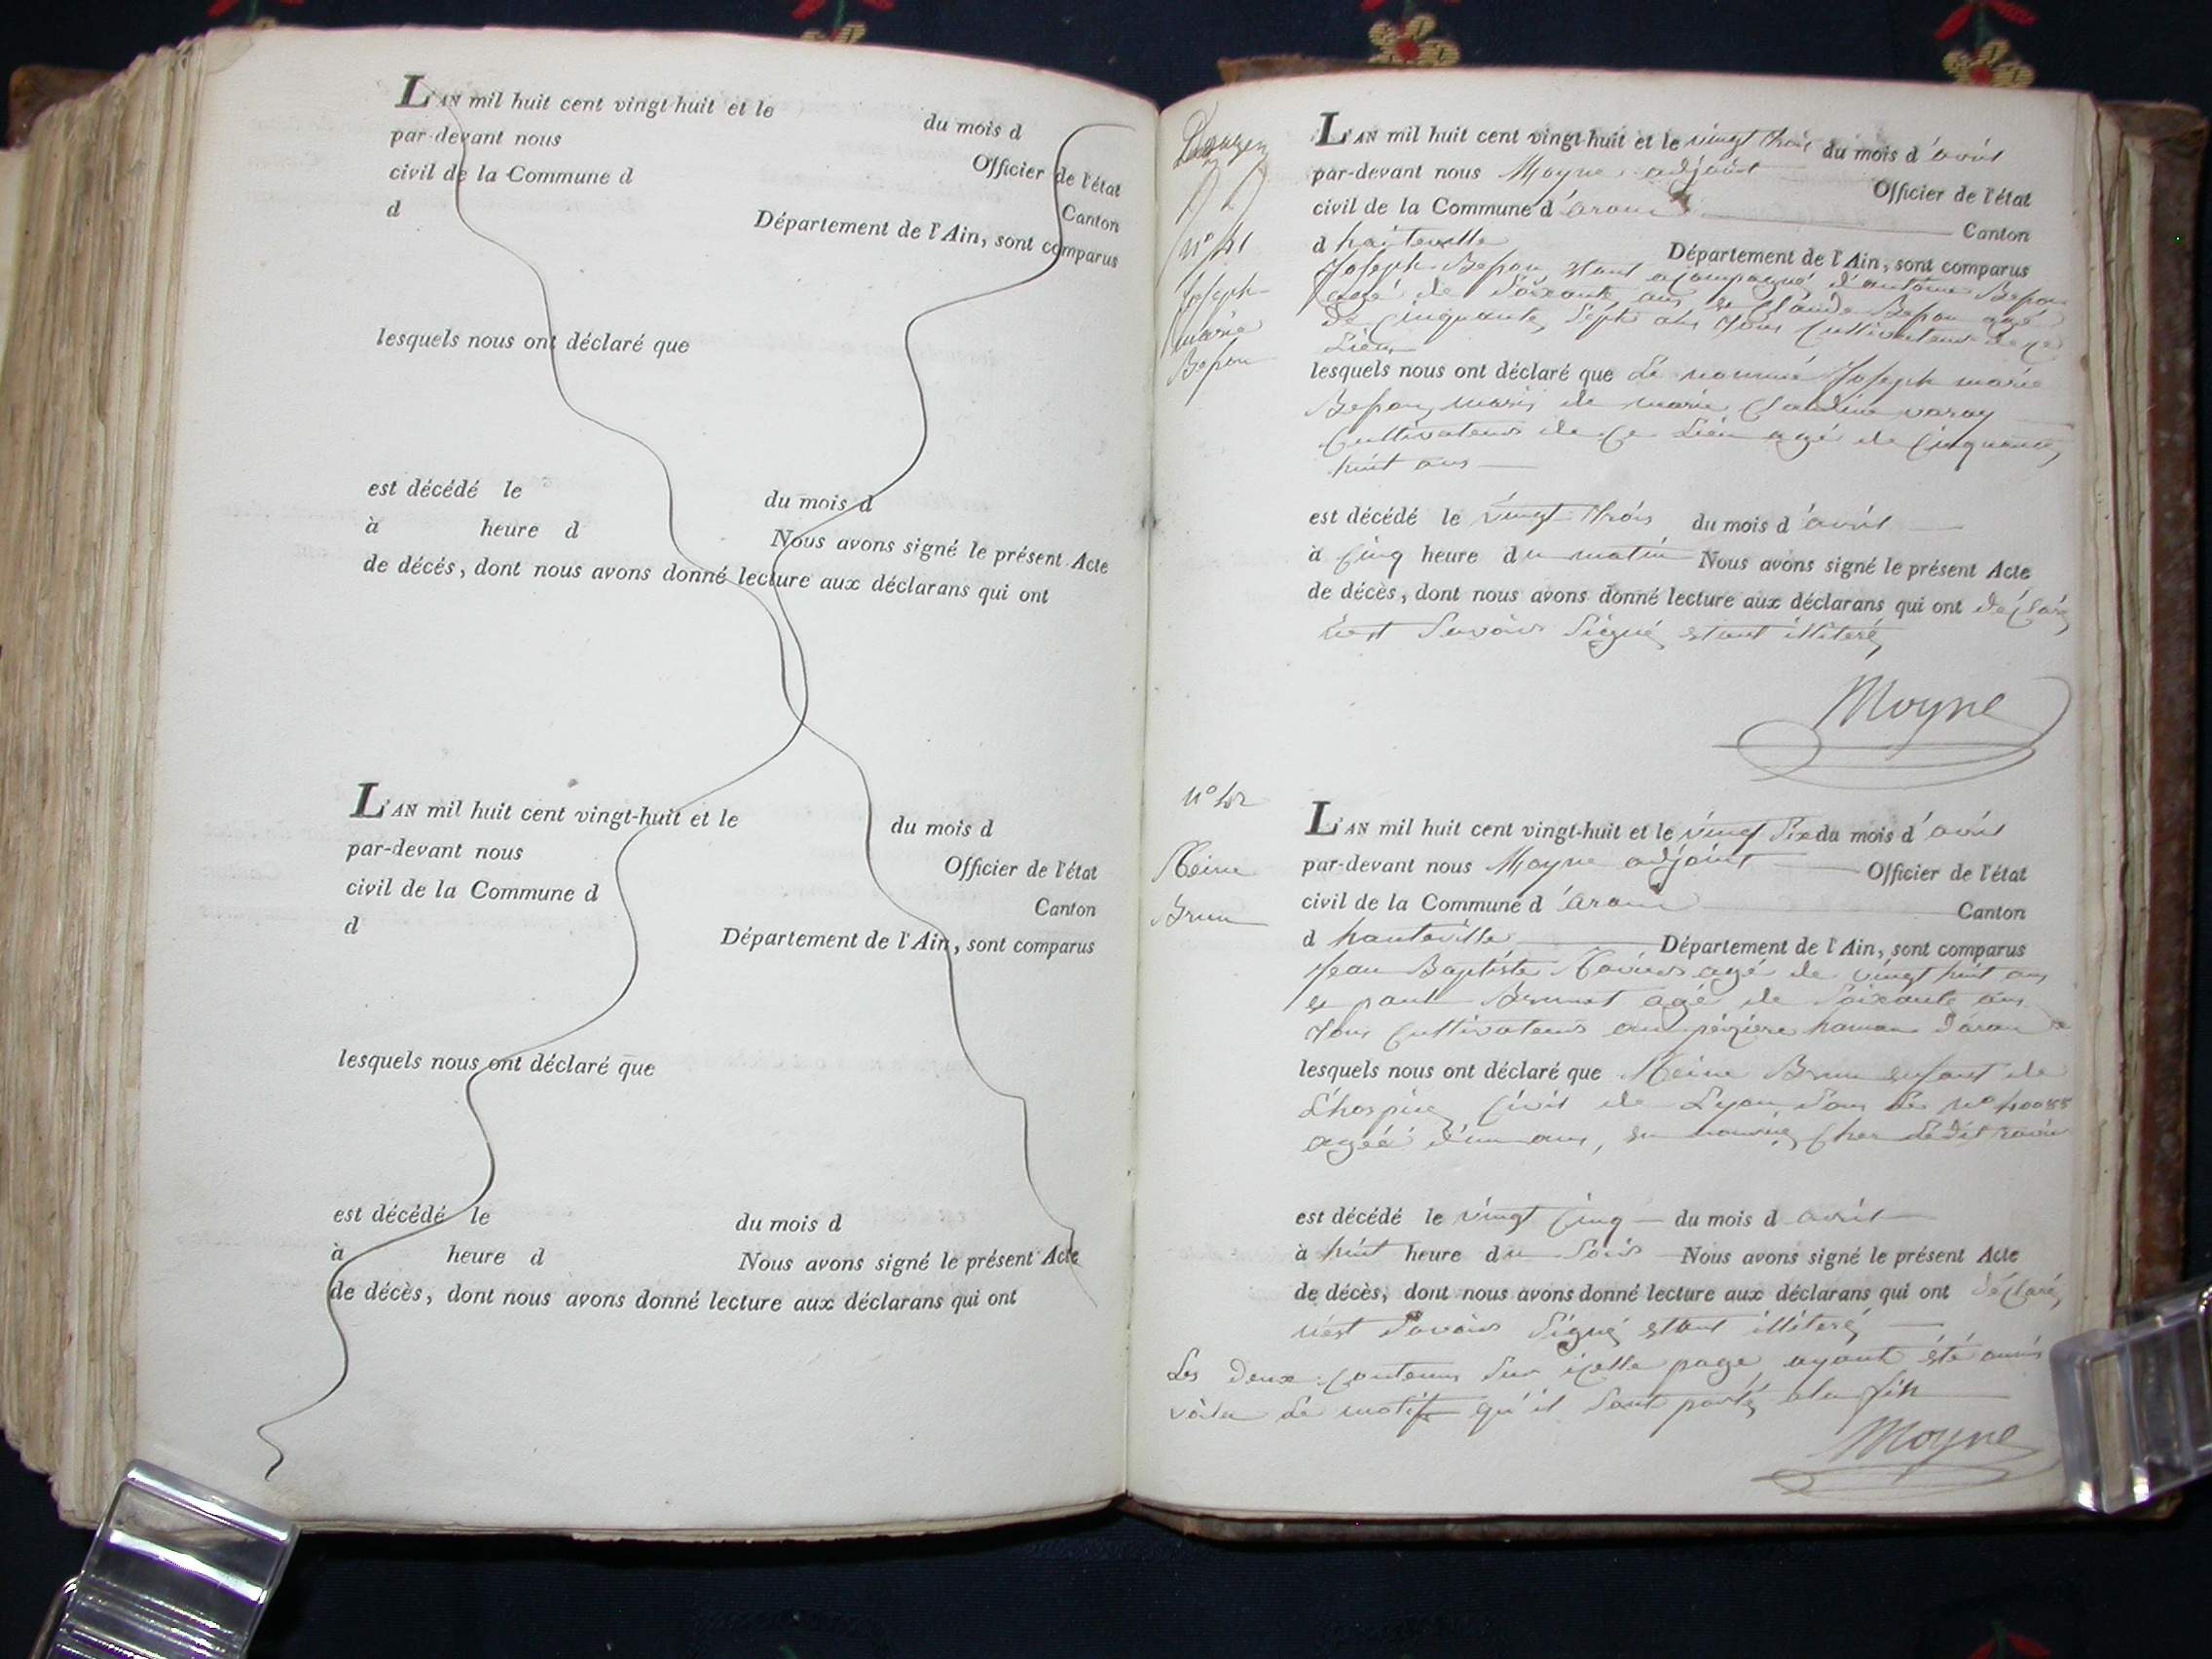 L'AN mil huit cent vingt-huit et le du mois d
par-devant nous Officier de l'état
civil de la Commune d Canton
d Département de l'Ain, sont comparus
lesquels nous ont déclaré que
est décédé le du mois d
à heure d Nous avons signé le présent Acte
de décés, dont nous avons donné lecture aux déclarans qui ont
L'AN mil huit cent vingt-huit et le du mois d
par-devant nous Officier de l'état
civil de la Commune d Canton
d Département de l'Ain, sont comparus
lesquels nous ont déclaré que
est décédé le du mois d
à heure d Nous avons signé le présent Acte
de décès, dont nous avons donné lecture aux déclarans qui ont
Joseph
marie
Bepon
L'AN mil huit cent vingt-huit et le vingt trois du mois d'avril
par-devant nous Moyne adjoint Officier de l'état
civil de la Commune d'aran Canton
d hauteville Département de l'Ain, sont comparus
Joseph Bepon, etant acompagné d'antoine Bepon
agé de Soixante ans et Claude Bepon agé
de Cinquante Sept ans tous Cultivateurs de ce
Lieu
lesquels nous ont déclaré que Le nommé Joseph marie
Bepon, maris de marie Claudine varay
Cultivateur de Ce Lieu agé de Cinquante
huit ans
est décédé le vingt trois du mois d'avril
à Cinq heure du matin Nous avons signé le présent Acte
de décès, dont nous avons donné lecture aux déclarans qui ont déClaré
Savoir Signé etant illiteré
Moyne
Reine
Brun
L'AN mil huit cent vingt-huit et le vingt Six du mois d'avril
par-devant nous Moyne adjoint Officier de l'état
civil de la Commune d'aran Canton
d hauteville Département de l'Ain, sont comparus
Jean Baptiste agé de vingt huit ans
et paul Brunet agé de Soixante ans
tous Cultivateurs hamau d'aran
lesquels nous ont déclaré que Reine Brun enfant de
L'hospice Civil de Lyon Sous Le N° 40088
agéé d'un ans, en Cher Ledit
est décédé le vingt Cinq du mois d avril
à huit heure du Soir Nous avons signé le présent Acte
de décès, dont nous avons donné lecture aux déclarans qui ont déClaré
n'est Savoir Signé etant illiteré
Les Deux Contenus Sur icelle page ayant été omis
voila Le motif qu'il Sont porté a la fin
Moyne